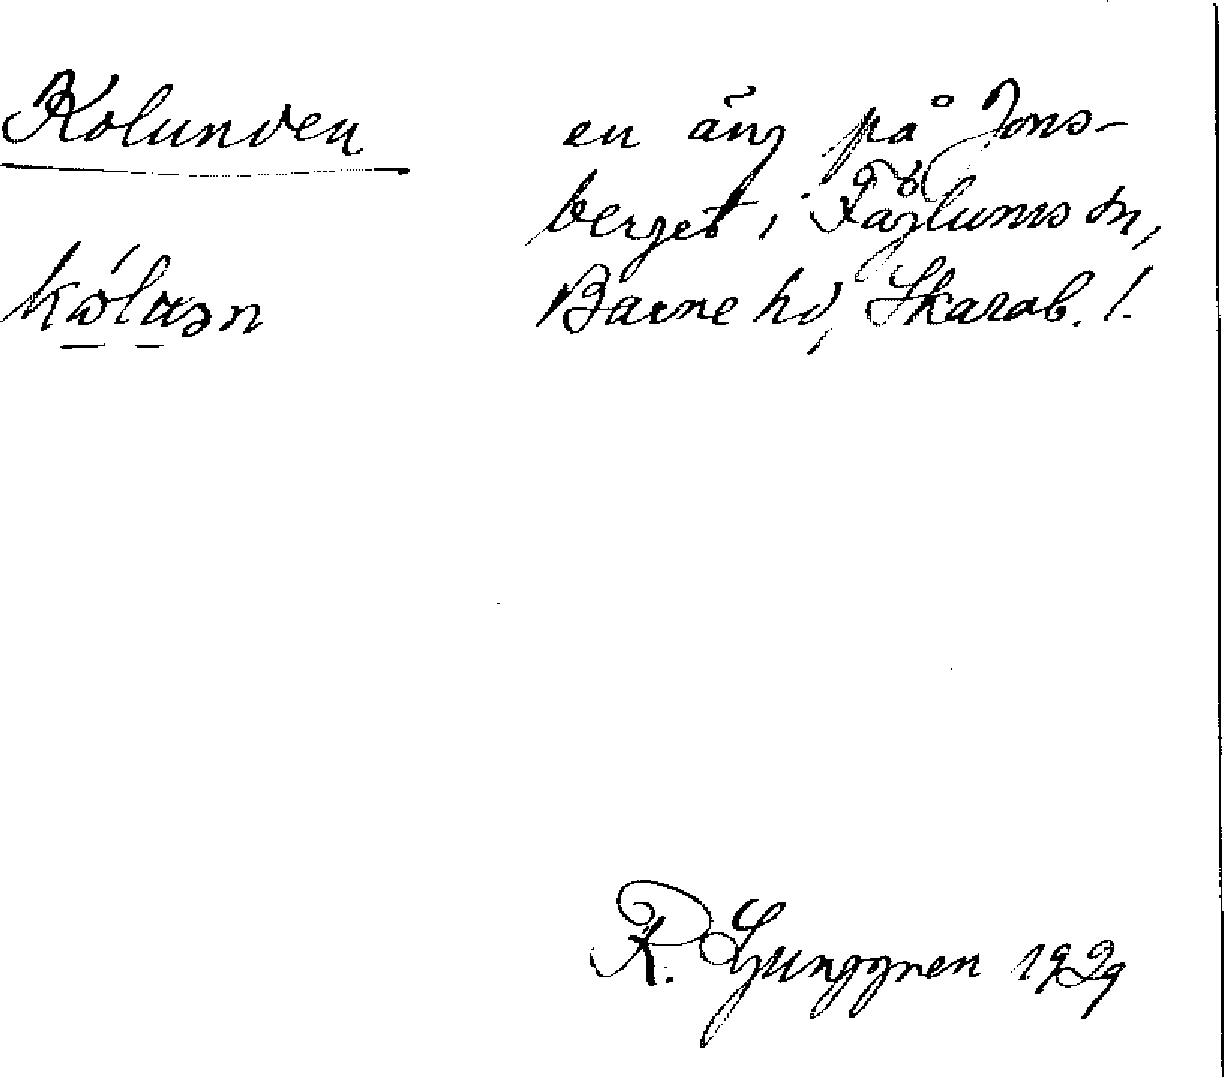 Kolunden
en äng på Jons-
berget, i Fåglums sn,
kólasn
Barne hd, Skarab. l.
R. Ljunggren 1929